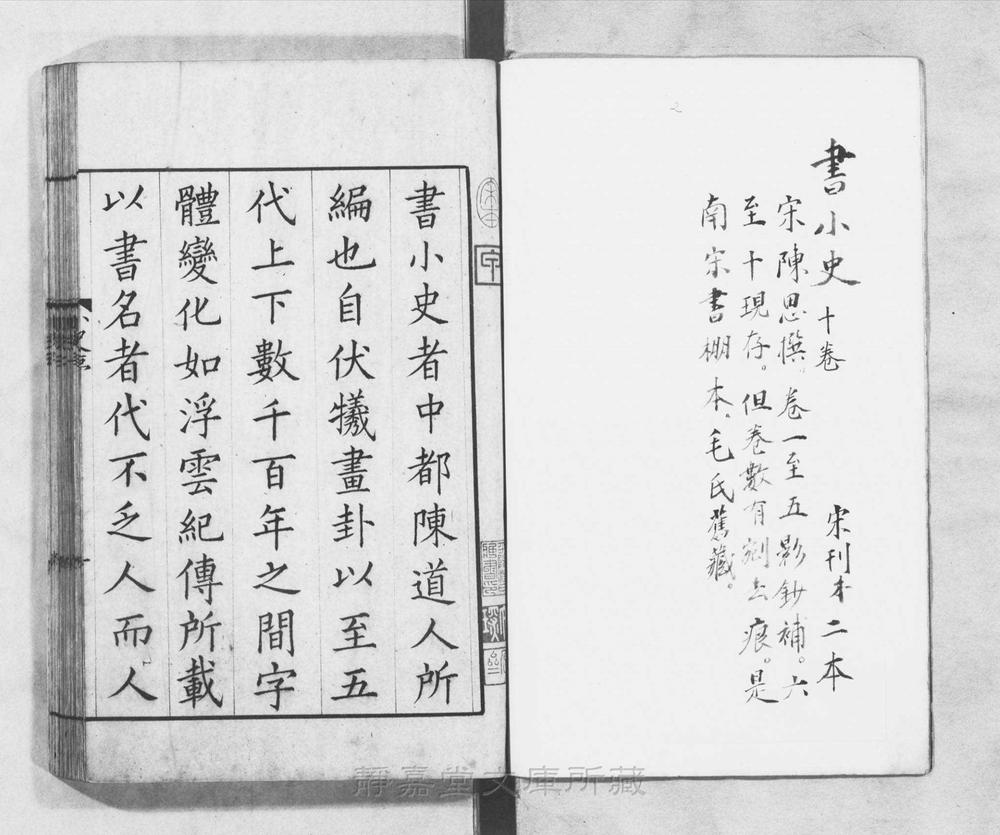 書小史十卷 宋刊本二本
宋陳思撰。卷一至五影鈔補。六
至十現存。但卷數有剜去痕。是
南宋書棚本。毛氏舊藏。
書小史者中都陳道人所
編也自伏犧畫卦以至五
代上下數千百年之間字
體變化如浮雲紀傳所載
以書名者代不乏人而人
靜嘉堂文庫所藏